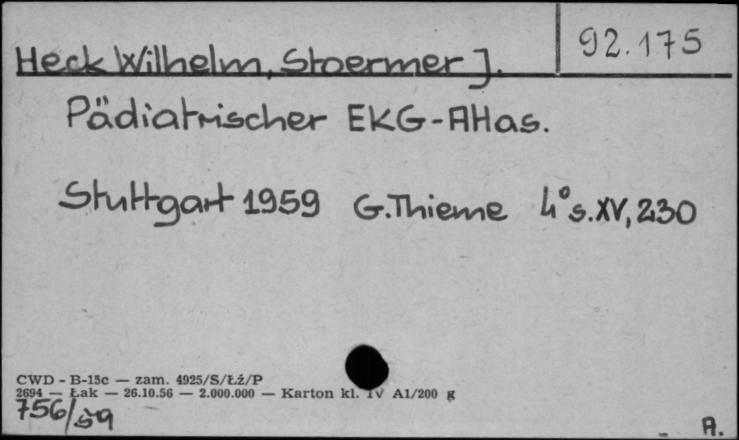 92.175
Heck Wilhelm, Stoermer J.
Pädiatrischer EKG-Atlas.
Stuttgart 1959 G.Thieme 4° s.XV, 230
CWD - B-15c — zam. 4925/S/Łź/P
2694 — Łak — 26.10.56 — 2.000.000 — Karton kl. IV A1/200 g
756/59
A.